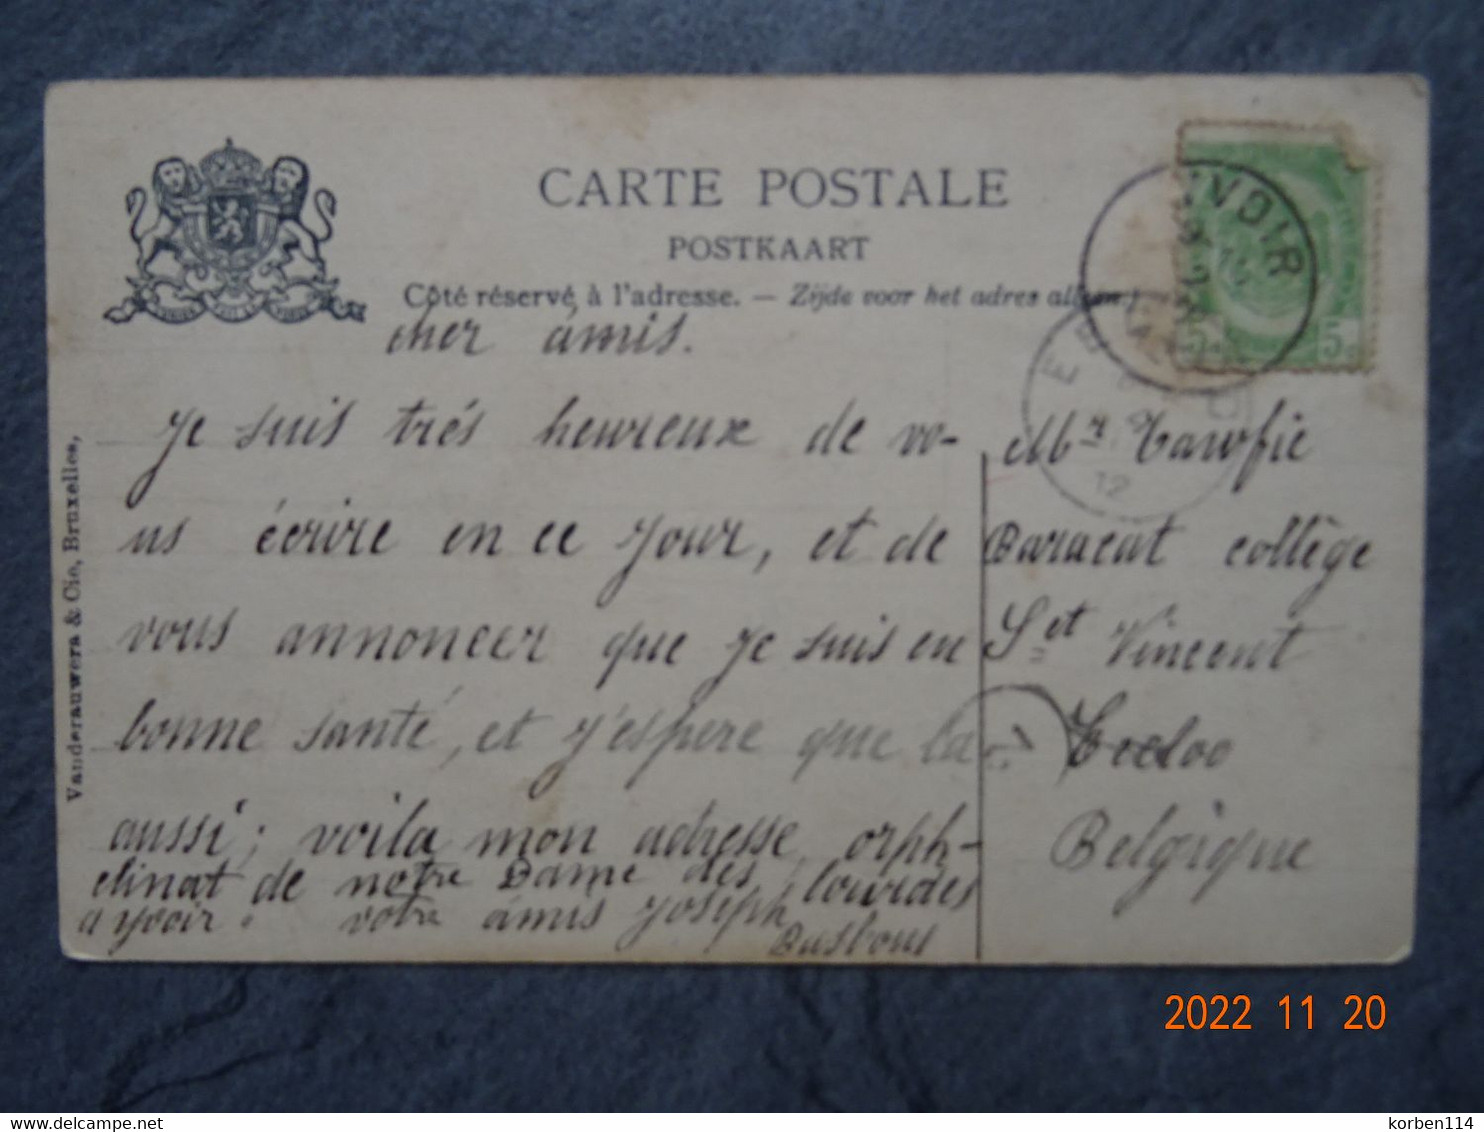 CARTE POSTALE
POSTKAART
Côté réservé à l'adresse. — Zijde voor het adres alleen.
YVOIR
5 5
12
cher ámis.
Je suis trés heureux de vo-
us écrire en ce jour, et de
vous annoncer que je suis en
bonne santé, et j'espere que la
aussi; voila mon adresse, orph-
elinat de notre Dame des Lourdes
a yvoir. votre ámis Joseph
Busbous
Mr Tawfic
Baracat collège
St Vincent
Eecloo
Belgique
Vanderauwera & Cie, Bruxelles,
2022 11 20
delcampe.net
korben114